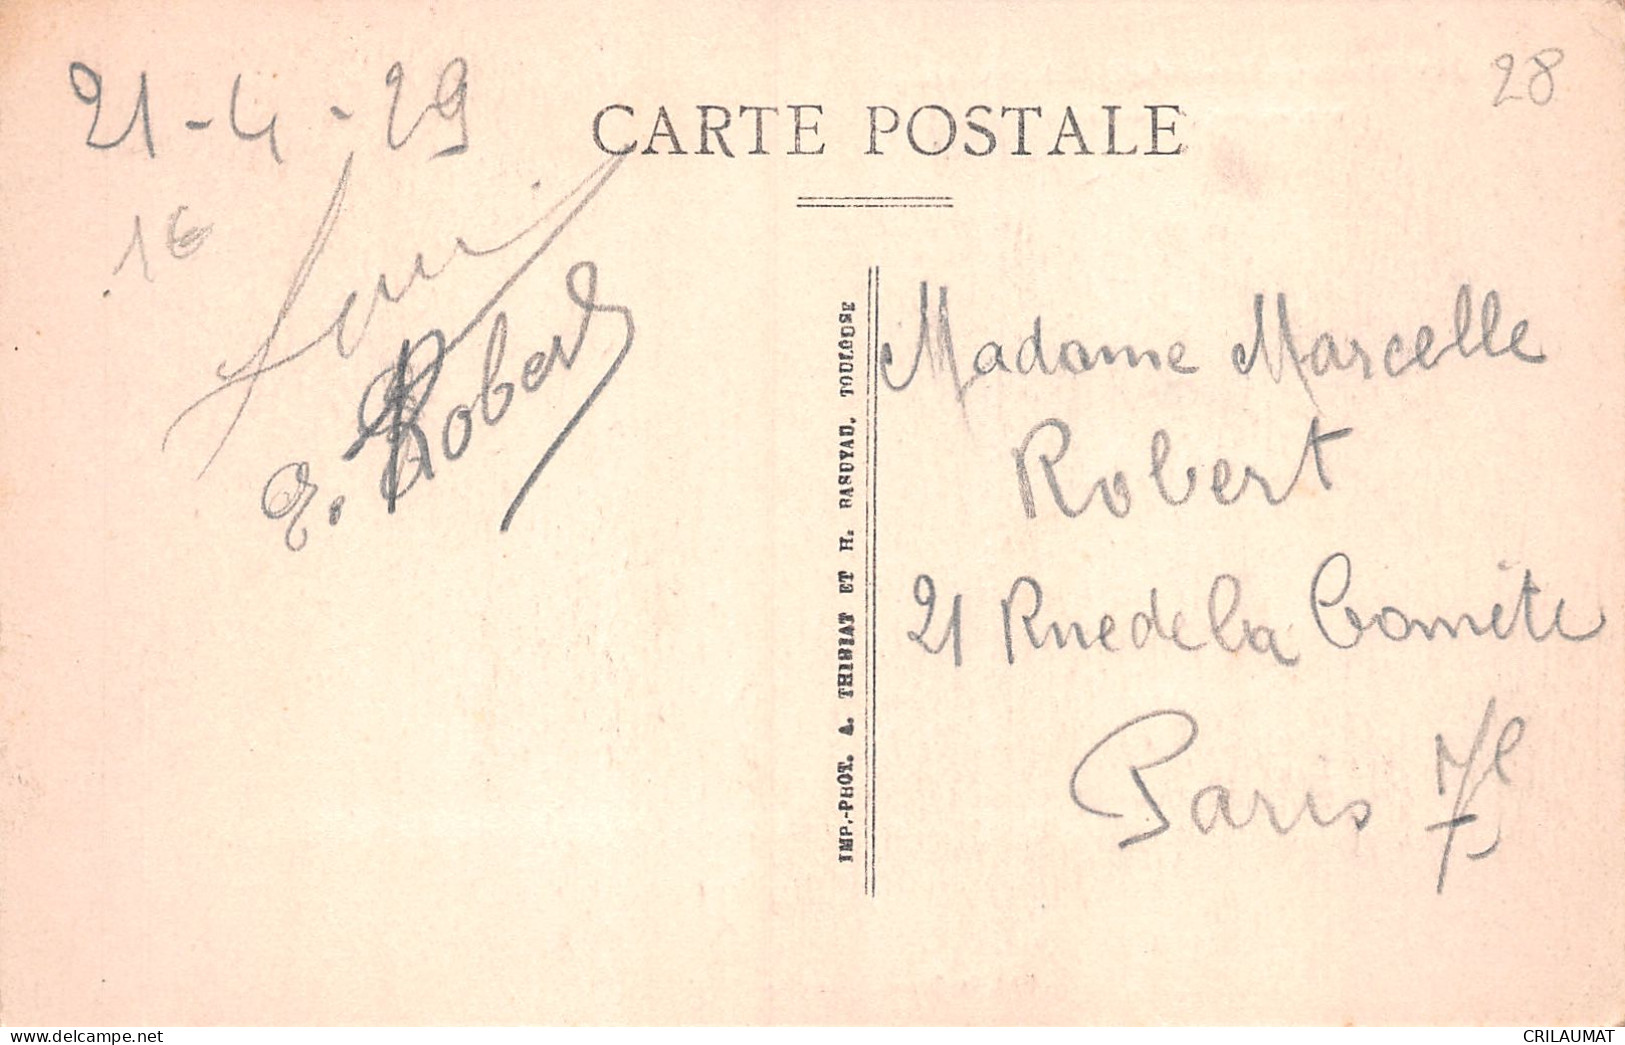 21-4-29
28
CARTE POSTALE
1€
Robert
Madame Marcelle
Robert
21 Rue de la Comète
Paris 7e
IMP.-PHOT. A. THIRIAT ET H. BASUYAU, TOULOUSE
delcampe.net
CRILAUMAT